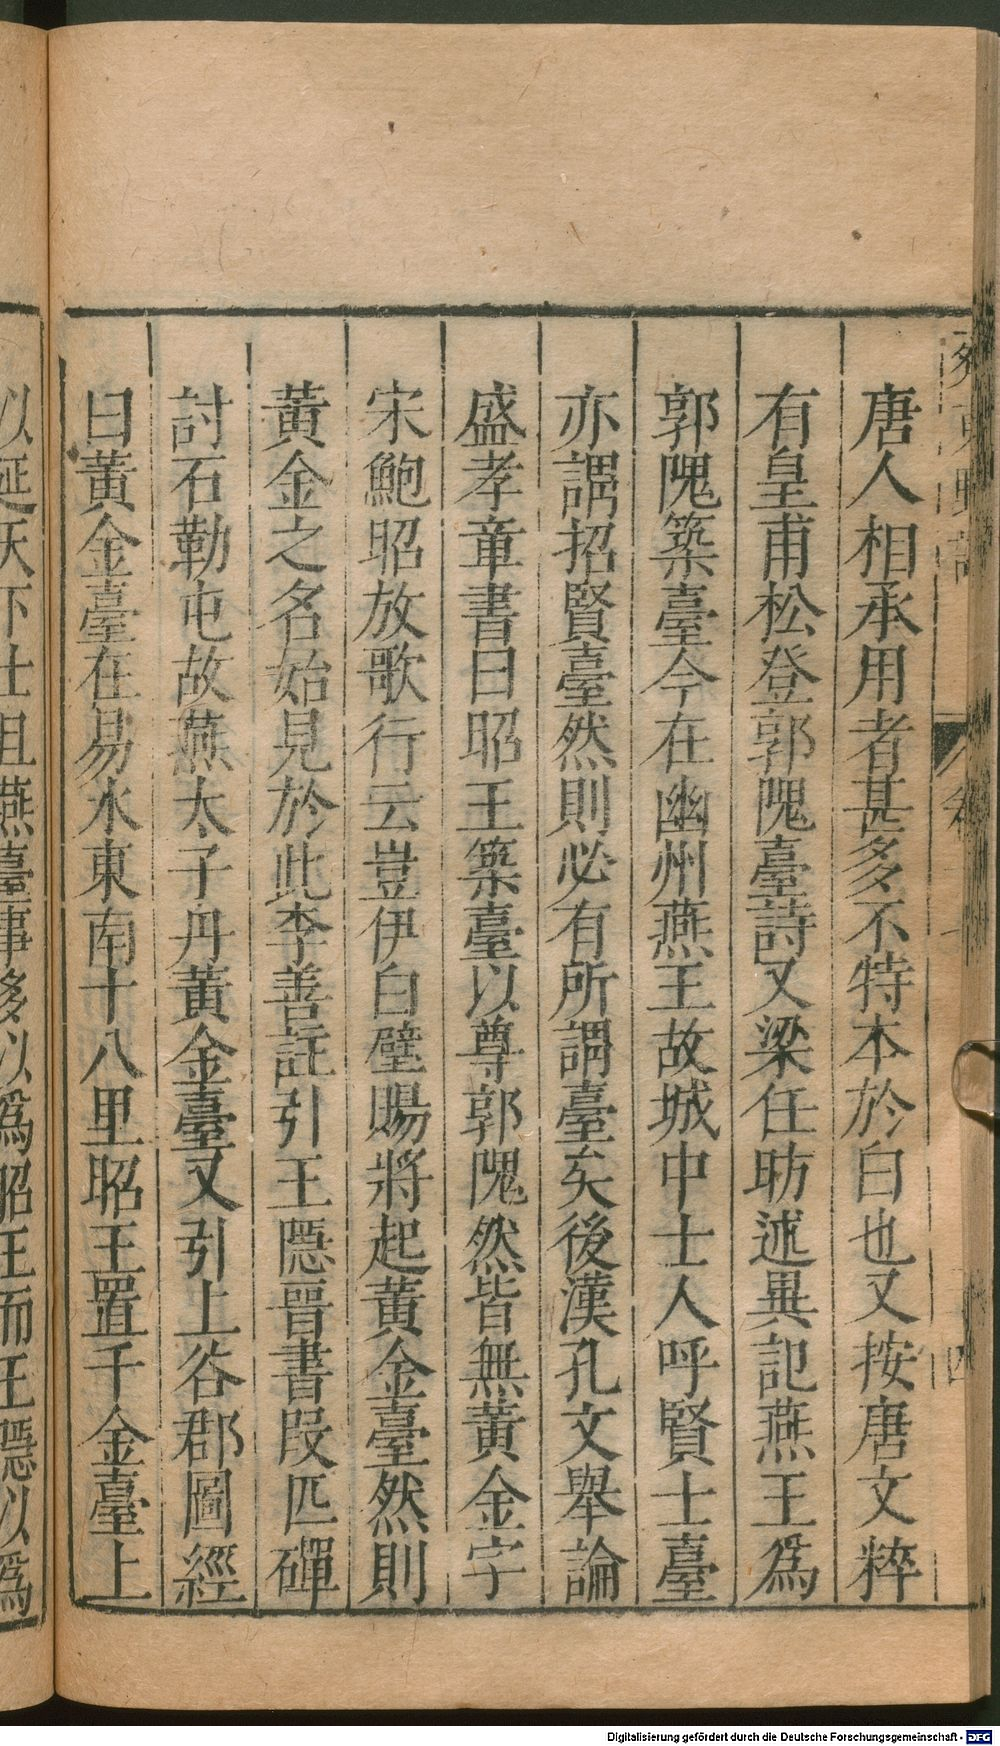 唐人相承用者甚多不特本於白也又按唐文粹
有皇甫松登郭隗臺詩又梁任昉述異記燕王爲
郭隗築臺今在幽州燕王故城中士人呼賢士臺
亦謂招賢臺然則必有所謂臺矣後漢孔文舉論
盛孝章書曰昭王築臺以尊郭隗然皆無黃金字
宋鮑昭放歌行云豈伊白璧賜將起黃金臺然則
黃金之名始見於此李善註引王隱晉書段匹磾
討石勒屯故燕太子丹黃金臺又引上谷郡圖經
曰黃金臺在易水東南十八里昭王置千金臺上
以延天下士且燕臺事多以爲昭王而王隱以爲
Digitalisierung gefördert durch die Deutsche Forschungsgemeinschaft - DFG